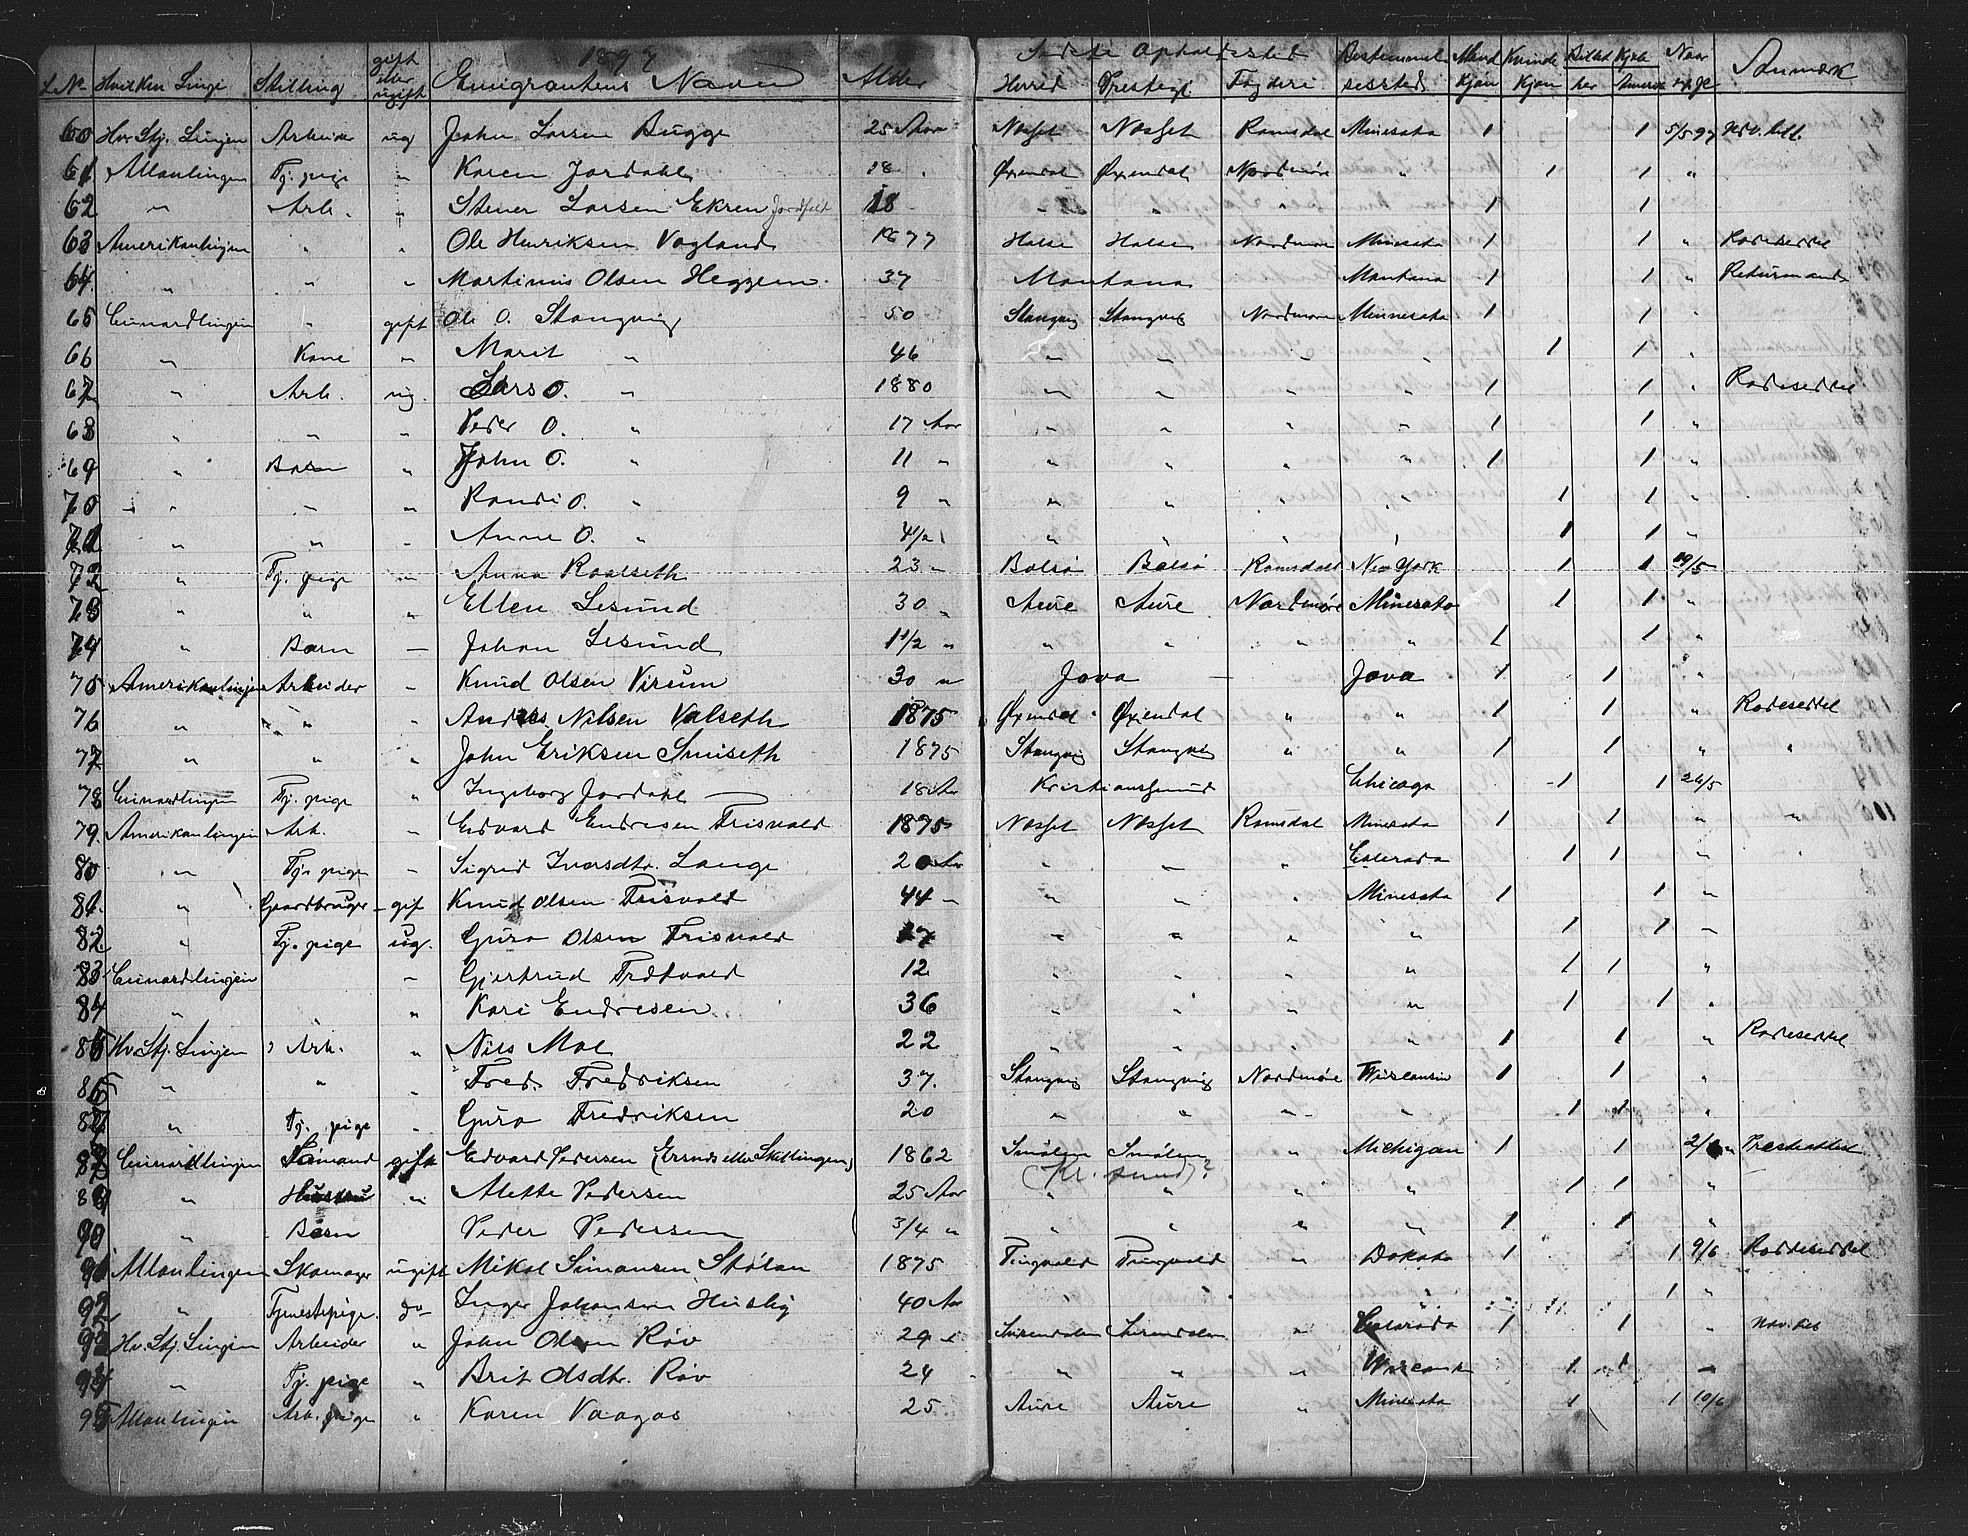 1897
L. No Hvilken Linje Stilling gift eller ugift Emigrantens Navn Alder Sidste Opholdssted Herred Prestegj. Fogderi Bestemmelsessted Mand Kjøn Kvinde Kjøn Billet Kjøbt her Amerika Naar rejst Anmærk
60 Hv. Stj. Linjen Arbeider ug John Larsen Bugge 25 Aar Nesset Nesset Romsdal Minesota 1 1 5/5 97
61 Allanlinjen Tj. pige " Karen Jordahl 18 " Øxendal Øxendal Nordmøre " 1 1 "
62 " Arb. " Stener Larsen Ekren Jordfalt 18 " " " " 1 1
63 Amerikanlinjen " " Ole Henriksen Vagland 1877 Halse Halse Nordmøre Minesota 1 1 " Rodeseddel
64 " " " Martinus Olsen Heggem 37 Montana Montana 1 1 " Returmand
65 Cunardlinjen " gift Ole O. Stangvig 50 Stangvig Stangvig Nordmøre Minnesota 1 1 "
66 " Kone " Marit " 46 " " " " 1 1 "
67 " Arb. ug. Lars O. " 1880 " " " " 1 1 " Rodeseddel
68 " " " Peder O. " 17 Aar " " " " 1 1 "
69 " Barn " John O. " 11 " " " " " 1 1 "
70 " " " Randi O. " 9 " " " " " 1 1 "
71 " " " Anne O. " 4 1/2 " " " " 1 1 "
72 " Tj. pige " Anna Roalseth 23 " Bolsø Bolsø Romsdal New York 1 1 19/5
73 " " " Ellen Lesund 30 " Aure Aure Nordmøre Minesota 1 1 "
74 " Barn — Johan Lesund 1 1/2 " " " " " 1 1 "
75 Amerikanlinjen Arbeider " Knud Olsen Virum 30 " Jova — Jova 1 1 "
76 " " " Anders Nilsen Valseth 1875 Øxendal Øxendal " " 1 1 " Rodeseddel
77 " " " John Eriksen Smiseth 1875 Stangvig Stangvig " " 1 1 " "
78 Cunardlinjen Tj. pige " Ingeborg Jordahl 18 Aar Kristianssund Chicago 1 1 26/5
79. Amerikanlinjen Arb. " Edvard Endresen Trisvald 1875 Nesset Nesset Romsdal Minesota 1 1 " "
80 " Tj. pige " Sigrid Ivarsdtr. Lange 20 Aar " " " Colerado 1 1 "
81. " Gaardbruger gif Knud Olsen Trisvald 44 " " " " Minesota 1 1 "
82. " Tj. pige ug. Guro Olsen Trisvald 17 " " " " 1 1 "
83 Cunardlinjen " Gjertrud 12 " " " " 1 1 "
84 " " Kari Endresen 36 " " " " 1 1 "
85 Hv. Stj. Linjen Arb. " Nils Moe 22 " " " " 1 1 " Rodeseddel
86 " " " Fred. Fredriksen 37. Stangvig Stangvig Nordmøre Wisconsin 1 1 "
87 " Tj. pige " Guro Fredriksen 20 " " " " 1 1 "
88 Cunardlinjen Sømand gift Edvard Pedersen 1862 Smølen Smølen " Michigan 1 1 2/6
(Kr. sund)?
89 " Hustru " Alette Pedersen 25 Aar " " " " 1 1 "
90 " Barn Peder Pedersen 3/4 " " " " " 1 1 "
91 Allanlinjen Skomager ugift Mikal Simonsen Stølan 1875 Tingvold Tingvold " Dakota 1 1 9/6 Rodeseddel
92 " Tjenestepige do Inger Johansen Husby 40 Aar " " " " 1 "
93 Hv. Stj. Linjen Arbeider " John Olsen Røv 29 " Surendalen Surendalen " Colorado 1 1 "
94 " Tj. pige " Brit Olsdtr. Røv 24 " " " 1 1 "
95 Allanlinjen Arb. pige " Karen Vaagos 25 Aure Aure " Minesota 1 1 10/6